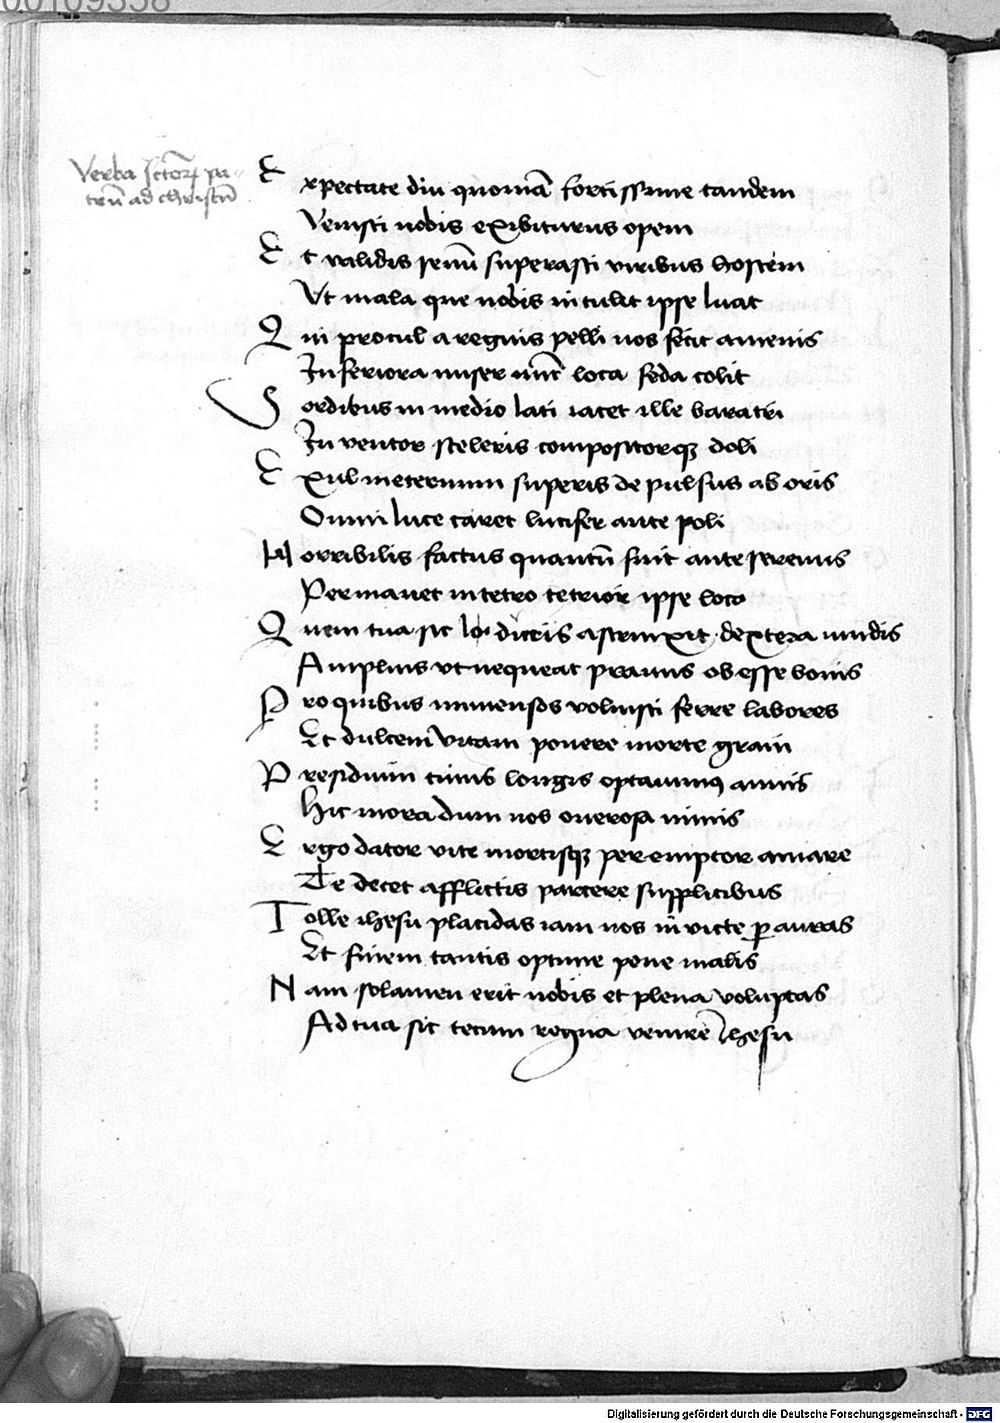 00109358
Verba sctoꝝ pa-
trū ad christū
Expectate diu quoniā fortissime tandem
Venisti nobis exibiturus opem
Et validis senū superasti viribus hostem
Vt mala que nobis intulit ipse luat
Qui procul a regnis pelli nos fecit amenis
Inferiora miser nūc loca feda colit
Sordibus in medio lati iacet ille baratri
Inventor sceleris compositorqꝫ doli
Exul in eternum superis depulsus ab oris
Omni luce caret lucifer ante poli
Horribilis factus quantū fuit ante serenus
Permanet in tetro tetrior ipse loco
Quem tua sic astrinxit dextera nudis
Amplius vt nequeat prauus obesse bonis
Pro quibus immensos voluisti ferre labores
Et dulcem vitam ponere morte graui
Presidium longis optauimus annis
Hic mora dum nos onerosa nimis
Ergo dator vite mortisqꝫ peremptor amare
Te decet afflictis parcere supplicibus
Tolle ihesu placidas iam nos invicte ꝑ auras
Et finem tantis optime pone malis
Nam solamen erit nobis et plena voluptas
Ad tua sic tecum regna venire Ihesu
Digitalisierung gefördert durch die Deutsche Forschungsgemeinschaft - DFG